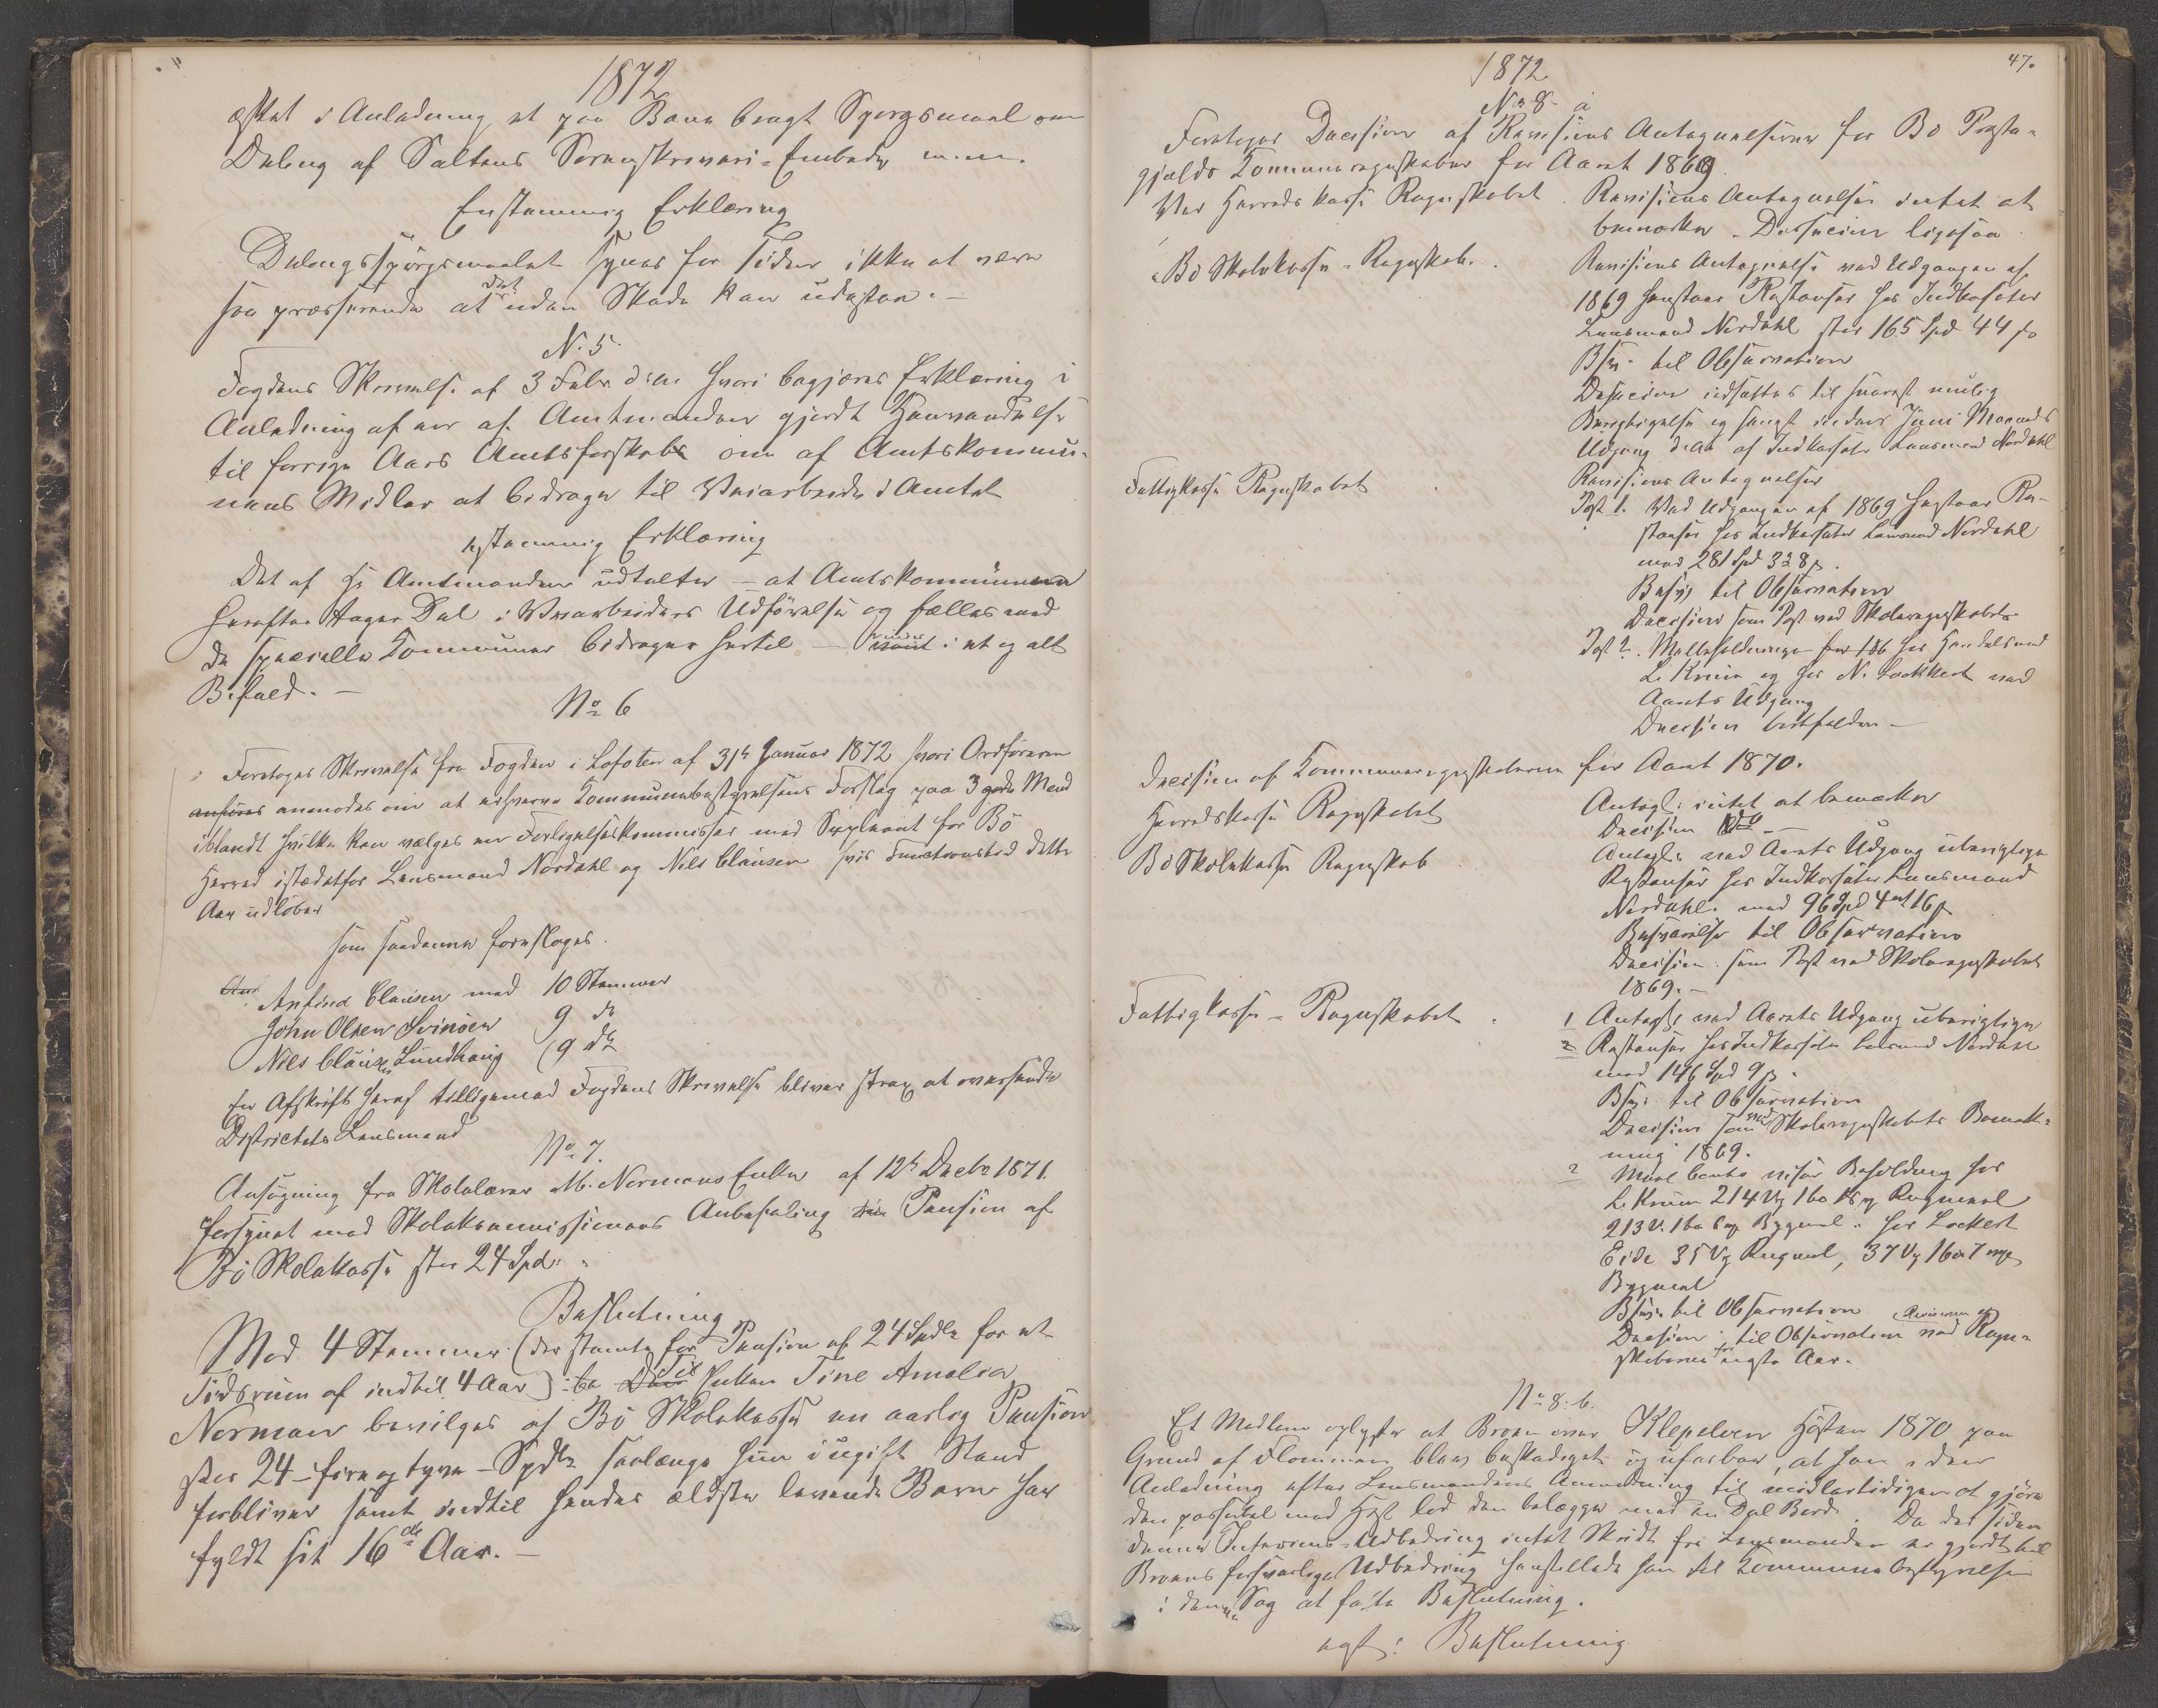 1872
æsket i Anledning et paa Bane bragt Spørgsmaal om
Deling af Saltens Sorenskriveri-Embede m.m.
Enstemmig Erklæring
Delingsspørgsmaalet synes for Tiden ikke at være
saa presserende at det uden Skade kan udestaa. -
N. 5
Fogdens Skrivelse af 3 Febr. d.A. hvori begjæres Erklæring i
Anledning af en af Amtmanden gjordt Henvendelse
til forrige Aars Amtsforskab om af Amtskommu-
nens Midler at bidrage til Veiarbeide i Amtet
enstemmig Erklæring
Det af Hr Amtmanden udtalte - at Amtskommunen
herefter tager Del i Veiarbeiders Udførelse og fælles med
de specielle Kommuner bidrager hertil - vinder i et og alt
Bifald. -
No 6
Foretoges Skrivelse fra Fogden i Lofoten af 31te Januar 1872 hvori Ordføreren
anføres anmodes om at erhverve Kommunebestyrelsens Forslag paa 3 gode Mend
iblandt hvilke kan vælges en Forligelseskommissær med Suppleant for Bø
Herred istedetfor Lensmand Nordahl og Nils Clausen hvis Functionstid dette
Aar udløber
som saadanne foresloges.
Anfind Clausen med 10 Stemmer
John Olsen Svinøen 9 do
Nils Clausen Lundhaug (9 do
En Afskrift heraf tilligemed Fogdens Skrivelse bliver strax at oversende
Districtets Lensmand
No 7.
Ansøgning fra Skolelærer M. Normans Enke af 12te Decbr 1871.
forsynet med Skolekommissionens Anbefaling Pension af
Bø Skolekasse stor 24 Spd.
Beslutning
Med 4 Stemmer (der stemte for Pension af 24 Spdlr for et
Tidsrum af indtil 4 Aar) : Til Enken Tine Amalia
Norman bevilges af Bø Skolekasse en aarlig Pension
stor 24 - fire og tyve - Spdlr saalænge hun i ugift Stand
forbliver samt indtil hendes ældste levende Barn har
fyldt sit 16de Aar. -
1872
47.
No 8. a
Foretoges Decision af Revisions Antegnelserne for Bø Præste-
gjelds Kommuneregnskaber for Aaret 1869.
Ved Herredskasse Regnskabet. Revisions Antegnelser intet at
bemærke. Decision ligesaa
Bø Skolekasse-Regnskab. Revisions Antegnelse ved Udgangen af
1869 henstaar Restanser hos Indkasserer
Lensmand Nordahl stor 165 Spd 44 s
Besv. til Observation
Decision udsættes til snarest mulig
Berigtigelse og senest inden Juni Maaneds
Udgang d.A. af Indkasserer Lensmand Nordahl
Fattigkasse Regnskabet. Revisions Antegnelser
Post 1. Ved Udgangen af 1869 henstaar Re-
stanser hos Indkasserer Lensmand Nordahl
med 281 Spd 3 8 s.
Besv. til Observation
Decision som Post ved Skoleregnskabet
Post 2. Melbeholdninger hos Handelsmand
L. Kriim og hos N. Lockkert ved
Aarets Udgang
Decision bortfalder -
Decision af Kommuneregnskaberne for Aaret 1870.
Herredskasse Regnskabet Antegl: intet at bemærke
Decision do -
Bø Skolekasse Regnskab Antegl. ved Aarets Udgang uberigtigede
Restanser hos Indkasserer Lensmand
Nordahl med 96 Spd 4 ort 16 s
Besvarelse til Observation
Decision: som Post ved Skoleregnskabet
1869. -
Fattigkasse-Regnskabet. 1 Antegl. ved Aarets Udgang uberigtigede
2 Restanser hos Indkasserer Lensmand Nordahl
med 146 Spd 9 s.
Besv: til Observation
Decision som ved Skoleregnskabets Bemærk-
ning 1869.
2 Meel Conto viser Beholdning hos
L. Kriim 214 Vg Rugmeel
213 V. Bygmeel. hos Lockert
Eide 35 Vg Rugmel, 37 Vg
Bygmeel
Besv. til Observation
Decision: til Observation ved Regn-
skaberne for næste Aar.
No 8: b.
Et Medlem oplyste at Broen over Klepelven Høsten 1870 paa
Grund af Flommen blev beskadiget og ufarbar, at han i den
Anledning efter Lensmandens Anmodning til midlertidigen at gjøre
den passabel med Hest lod den belægge med en Del Bord. Da der siden
denne Interims-Udbedring intet Skridt fra Lensmanden er gjordt til
Broens forsvarlige Udbedring henstillede han til Kommunebestyrelsen
i denne Sag at fatte Beslutning.
Beslutning